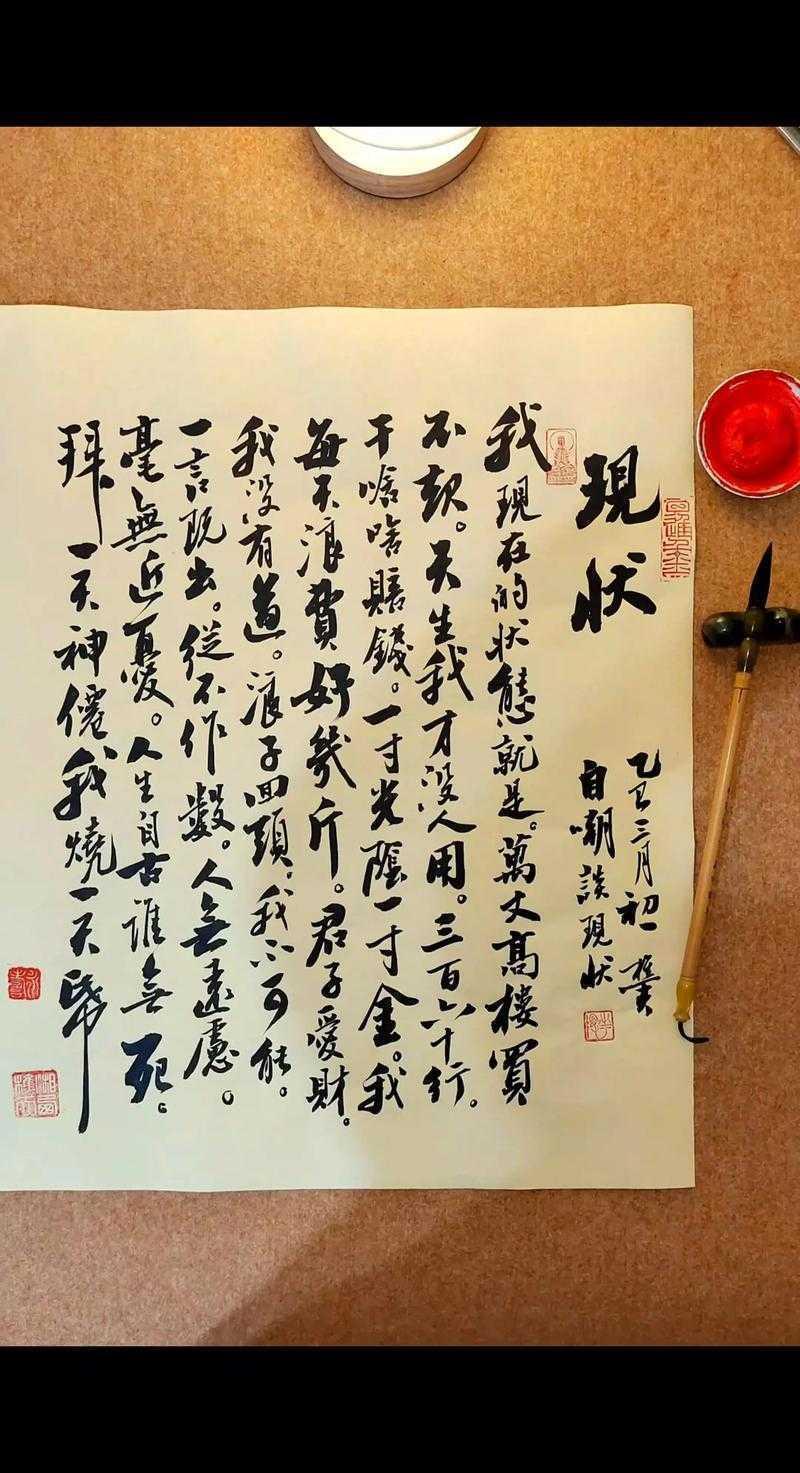 現状
乙巳三月初
自嘲談現狀
我現在的状態就是。萬丈高樓買
不起。天生我才没人用。三百六十行。
干啥啥賠錢。一寸光陰一寸金。我
每天浪費好幾斤。君子愛財。
我没有道。浪子回頭。我不可能。
一言既出。從不作數。人無遠慮。
毫無近憂。人生自古誰無死。
拜一天神僊我燒一天